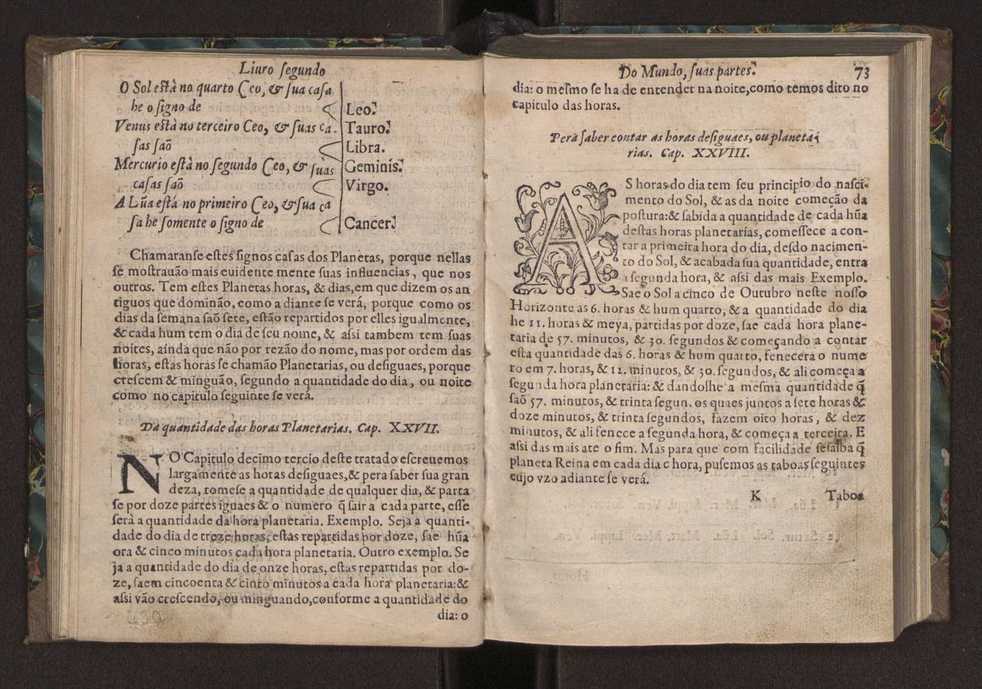 Liuro segundo
O Sol està no quarto Ceo, & sua casa
he o signo de Leo.
Venus està no terceiro Ceo, & suas ca-
sas saõ Tauro.
Libra.
Mercurio està no segundo Ceo, & suas
casas saõ Geminis.
Virgo.
A Lũa està no primeiro Ceo, & sua ca
sa he somente o signo de Cancer.
Chamaranse estes signos casas dos Planetas, porque nellas
se mostrauão mais euidente mente suas influencias, que nos
outros. Tem estes Planetas horas, & dias, em que dizem os an
tiguos que dominão, como a diante se verá, porque como os
dias da semana saõ sete, estão repartidos por elles igualmente,
& cada hum tem o dia de seu nome, & assi tambem tem suas
noites, ainda que não por rezão do nome, mas por ordem das
horas, estas horas se chamão Planetarias, ou desiguaes, porque
crescem & minguão, segundo a quantidade do dia, ou noite
como no capitulo seguinte se verá.
Da quantidade das horas Planetarias. Cap. XXVII.
NO Capitulo decimo tercio deste tratado escreuemos
largamente as horas desiguaes, & pera saber sua gran
deza, tomese a quantidade de qualquer dia, & parta
se por doze partes iguaes & o numero q̃ sair a cada parte, esse
será a quantidade da hora planetaria. Exemplo. Seja a quanti-
dade do dia de treze horas, estas repartidas por doze, sae hũa
ora & cinco minutos cada hora planetaria. Outro exemplo. Se
ja a quantidade do dia de onze horas, estas repartidas por do-
ze, saem cincoenta & cinto minutos a cada hora planetaria: &
assi vão crescendo, ou minguando, conforme a quantidade do
dia: o
Do Mundo, suas partes. 73
dia: o mesmo se ha de entender na noite, como temos dito no
capitulo das horas.
Pera saber contar as horas desiguaes, ou planeta-
rias. Cap. XXVIII.
AS horas do dia tem seu principio do nasci-
mento do Sol, & as da noite começão da
postura: & sabida a quantidade de cada hũa
destas horas planetarias, comessece a con-
tar a primeira hora do dia, desdo nacimen-
to do Sol, & acabada sua quantidade, entra
a segunda hora, & assi das mais Exemplo.
Sae o Sol a cinco de Outubro neste nosso
Horizonte as 6. horas & hum quarto, & a quantidade do dia
he 11. horas & meya, partidas por doze, sae cada hora plane-
taria de 57. minutos, & 30. segundos & começando a contar
esta quantidade das 6. horas & hum quarto, fenecera o nume
ro em 7. horas, & 12. minutos, & 30. segundos, & ali começa a
segunda hora planetaria: & dandolhe a mesma quantidade q̃
saõ 57. minutos, & trinta segun. os quaes juntos a sete horas &
doze minutos, & trinta segundos, fazem oito horas, & dez
minutos, & ali fenece a segunda hora, & começa a terceira. E
assi das mais ate o fim. Mas para que com facilidade se saiba q̃
planeta Reina em cada dia e hora, pusemos as taboas seguintes
cujo vzo adiante se verá.
K Taboa